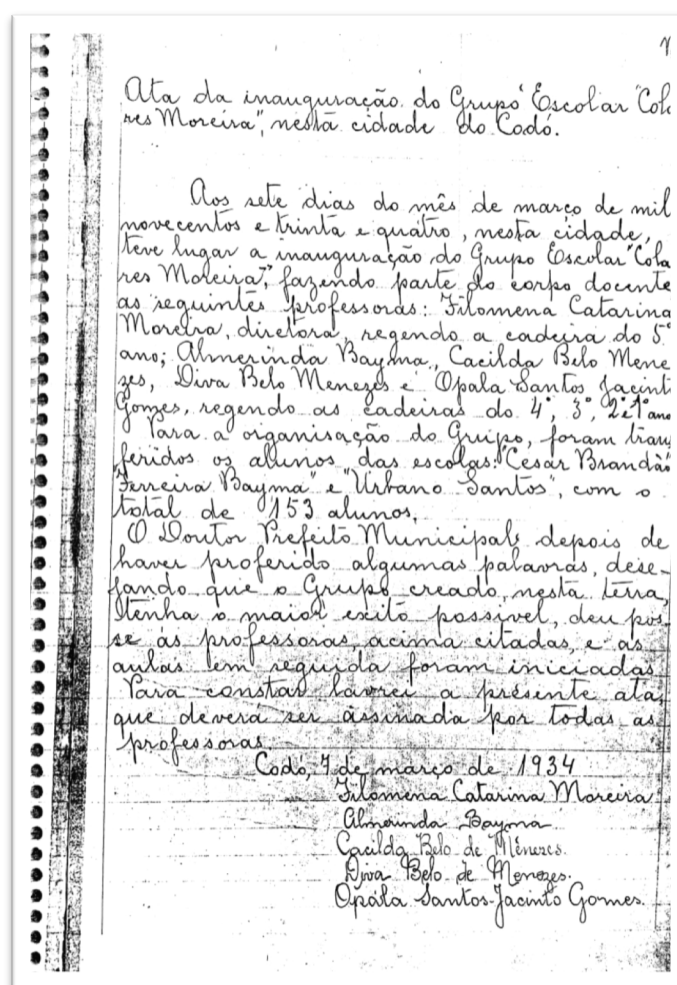 Ata da inauguração do Grupo Escolar "Cola
res Moreira", nesta cidade do Codó.
Aos sete dias do mês de março de mil
novecentos e trinta e quatro, nesta cidade,
teve lugar a inauguração do Grupo Escolar "Cola
res Moreira", fazendo parte do corpo docente
as seguintes professoras: Filomena Catarina
Moreira, diretora, regendo a cadeira do 5º
ano; Almerinda Bayma, Cacilda Belo Mene
zes, Diva Belo Menezes e Opala Santos Jacint
Gomes, regendo as cadeiras do 4º, 3º, 2º e 1º ano
Para a organisação do Grupo, foram tran
feridos os alunos das escolas: "Cesar Brandão"
"Ferreira Bayma" e "Urbano Santos", com o
total de 153 alunos.
O Doutor Prefeito Municipal, depois de
haver proferido algumas palavras, dese-
jando que o Grupo creado, nesta terra,
tenha o maior exito possivel, deu pos
se ás professoras acima citadas, e as
aulas em seguida foram iniciadas.
Para constar lavrei a presente ata,
que deverá ser assinada por todas as
professoras.
Codó, 7 de março de 1934
Filomena Catarina Moreira
Almerinda Bayma
Cacilda Belo de Mênezes.
Diva Belo de Menezes.
Opála Santos Jacinto Gomes.